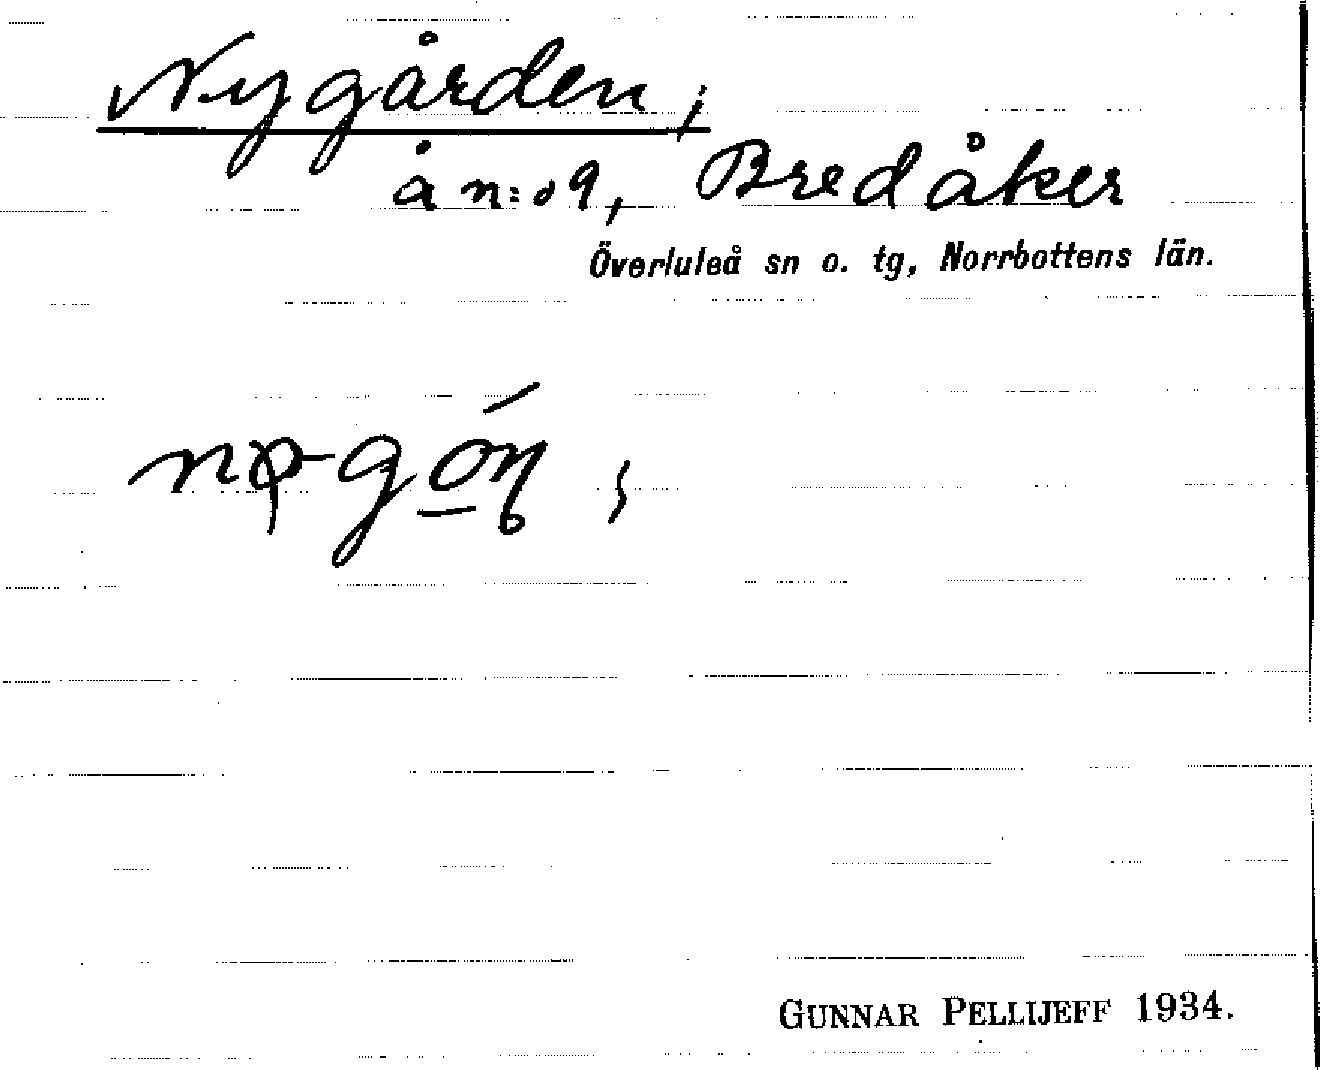 Nygården,
å n:o 9, Bredåker
Överluleå sn o. tg, Norrbottens län.
GUNNAR PELLIJEFF 1934.